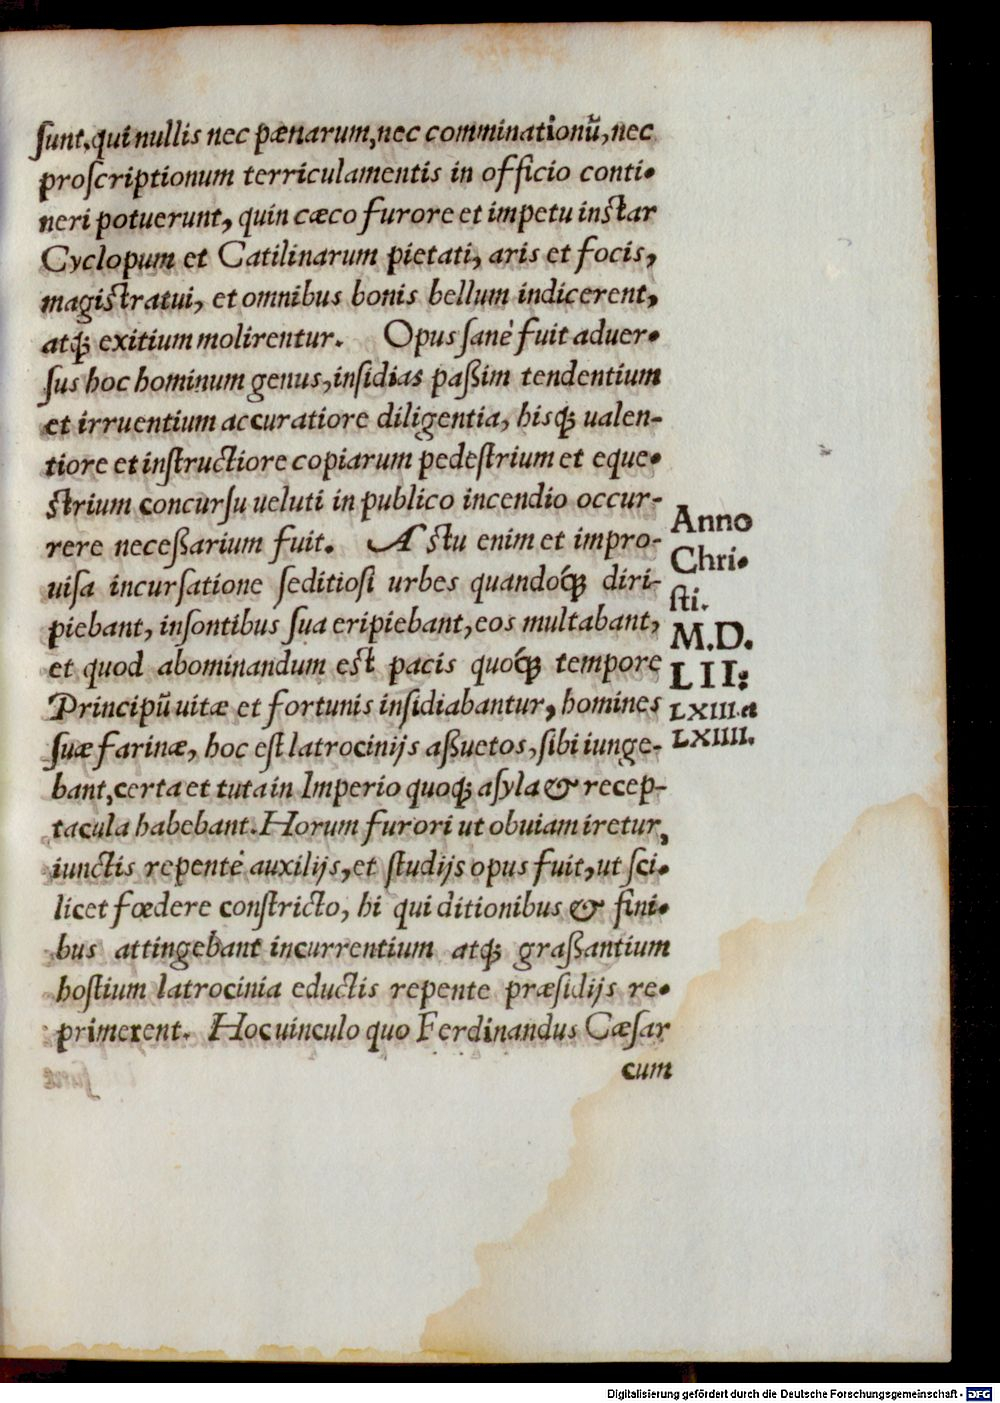 ſunt, qui nullis nec pænarum, nec comminationū, nec
proſcriptionum terriculamentis in officio conti⸗
neri potuerunt, quin cæco furore et impetu inſtar
Cyclopum et Catilinarum pietati, aris et focis,
magiſtratui, et omnibus bonis bellum indicerent,
atq́; exitium molirentur. Opus ſanè fuit aduer⸗
ſus hoc hominum genus, inſidias paßim tendentium
et irruentium accuratiore diligentia, hisq́; ualen-
tiore et inſtructiore copiarum pedeſtrium et eque⸗
ſtrium concurſu ueluti in publico incendio occur-
rere neceßarium fuit. Aſtu enim et impro-
uiſa incurſatione ſeditioſi urbes quandoq́; diri-
piebant, inſontibus ſua eripiebant, eos multabant,
et quod abominandum eſt pacis quoq́; tempore
Principū uitæ et fortunis inſidiabantur, homines
ſuæ farinæ, hoc eſt latrocinijs aßuetos, ſibi iunge-
bant, certa et tuta in Imperio quoq́; aſyla & recep-
tacula habebant. Horum furori ut obuiam iretur,
iunctis repentè auxilijs, et ſtudijs opus fuit, ut ſci⸗
licet fœdere conſtricto, hi qui ditionibus & fini⸗
bus attingebant incurrentium atq́; graßantium
hoſtium latrocinia eductis repente præſidijs re⸗
primerent. Hoc uinculo quo Ferdinandus Cæſar
cum
Anno
Chri⸗
ſti.
M.D.
LII:
LXIII.et
LXIIII.
Digitalisierung gefördert durch die Deutsche Forschungsgemeinschaft - DFG